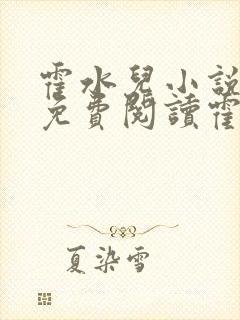 霍水兒小説
免費閱讀霍
夏染雪